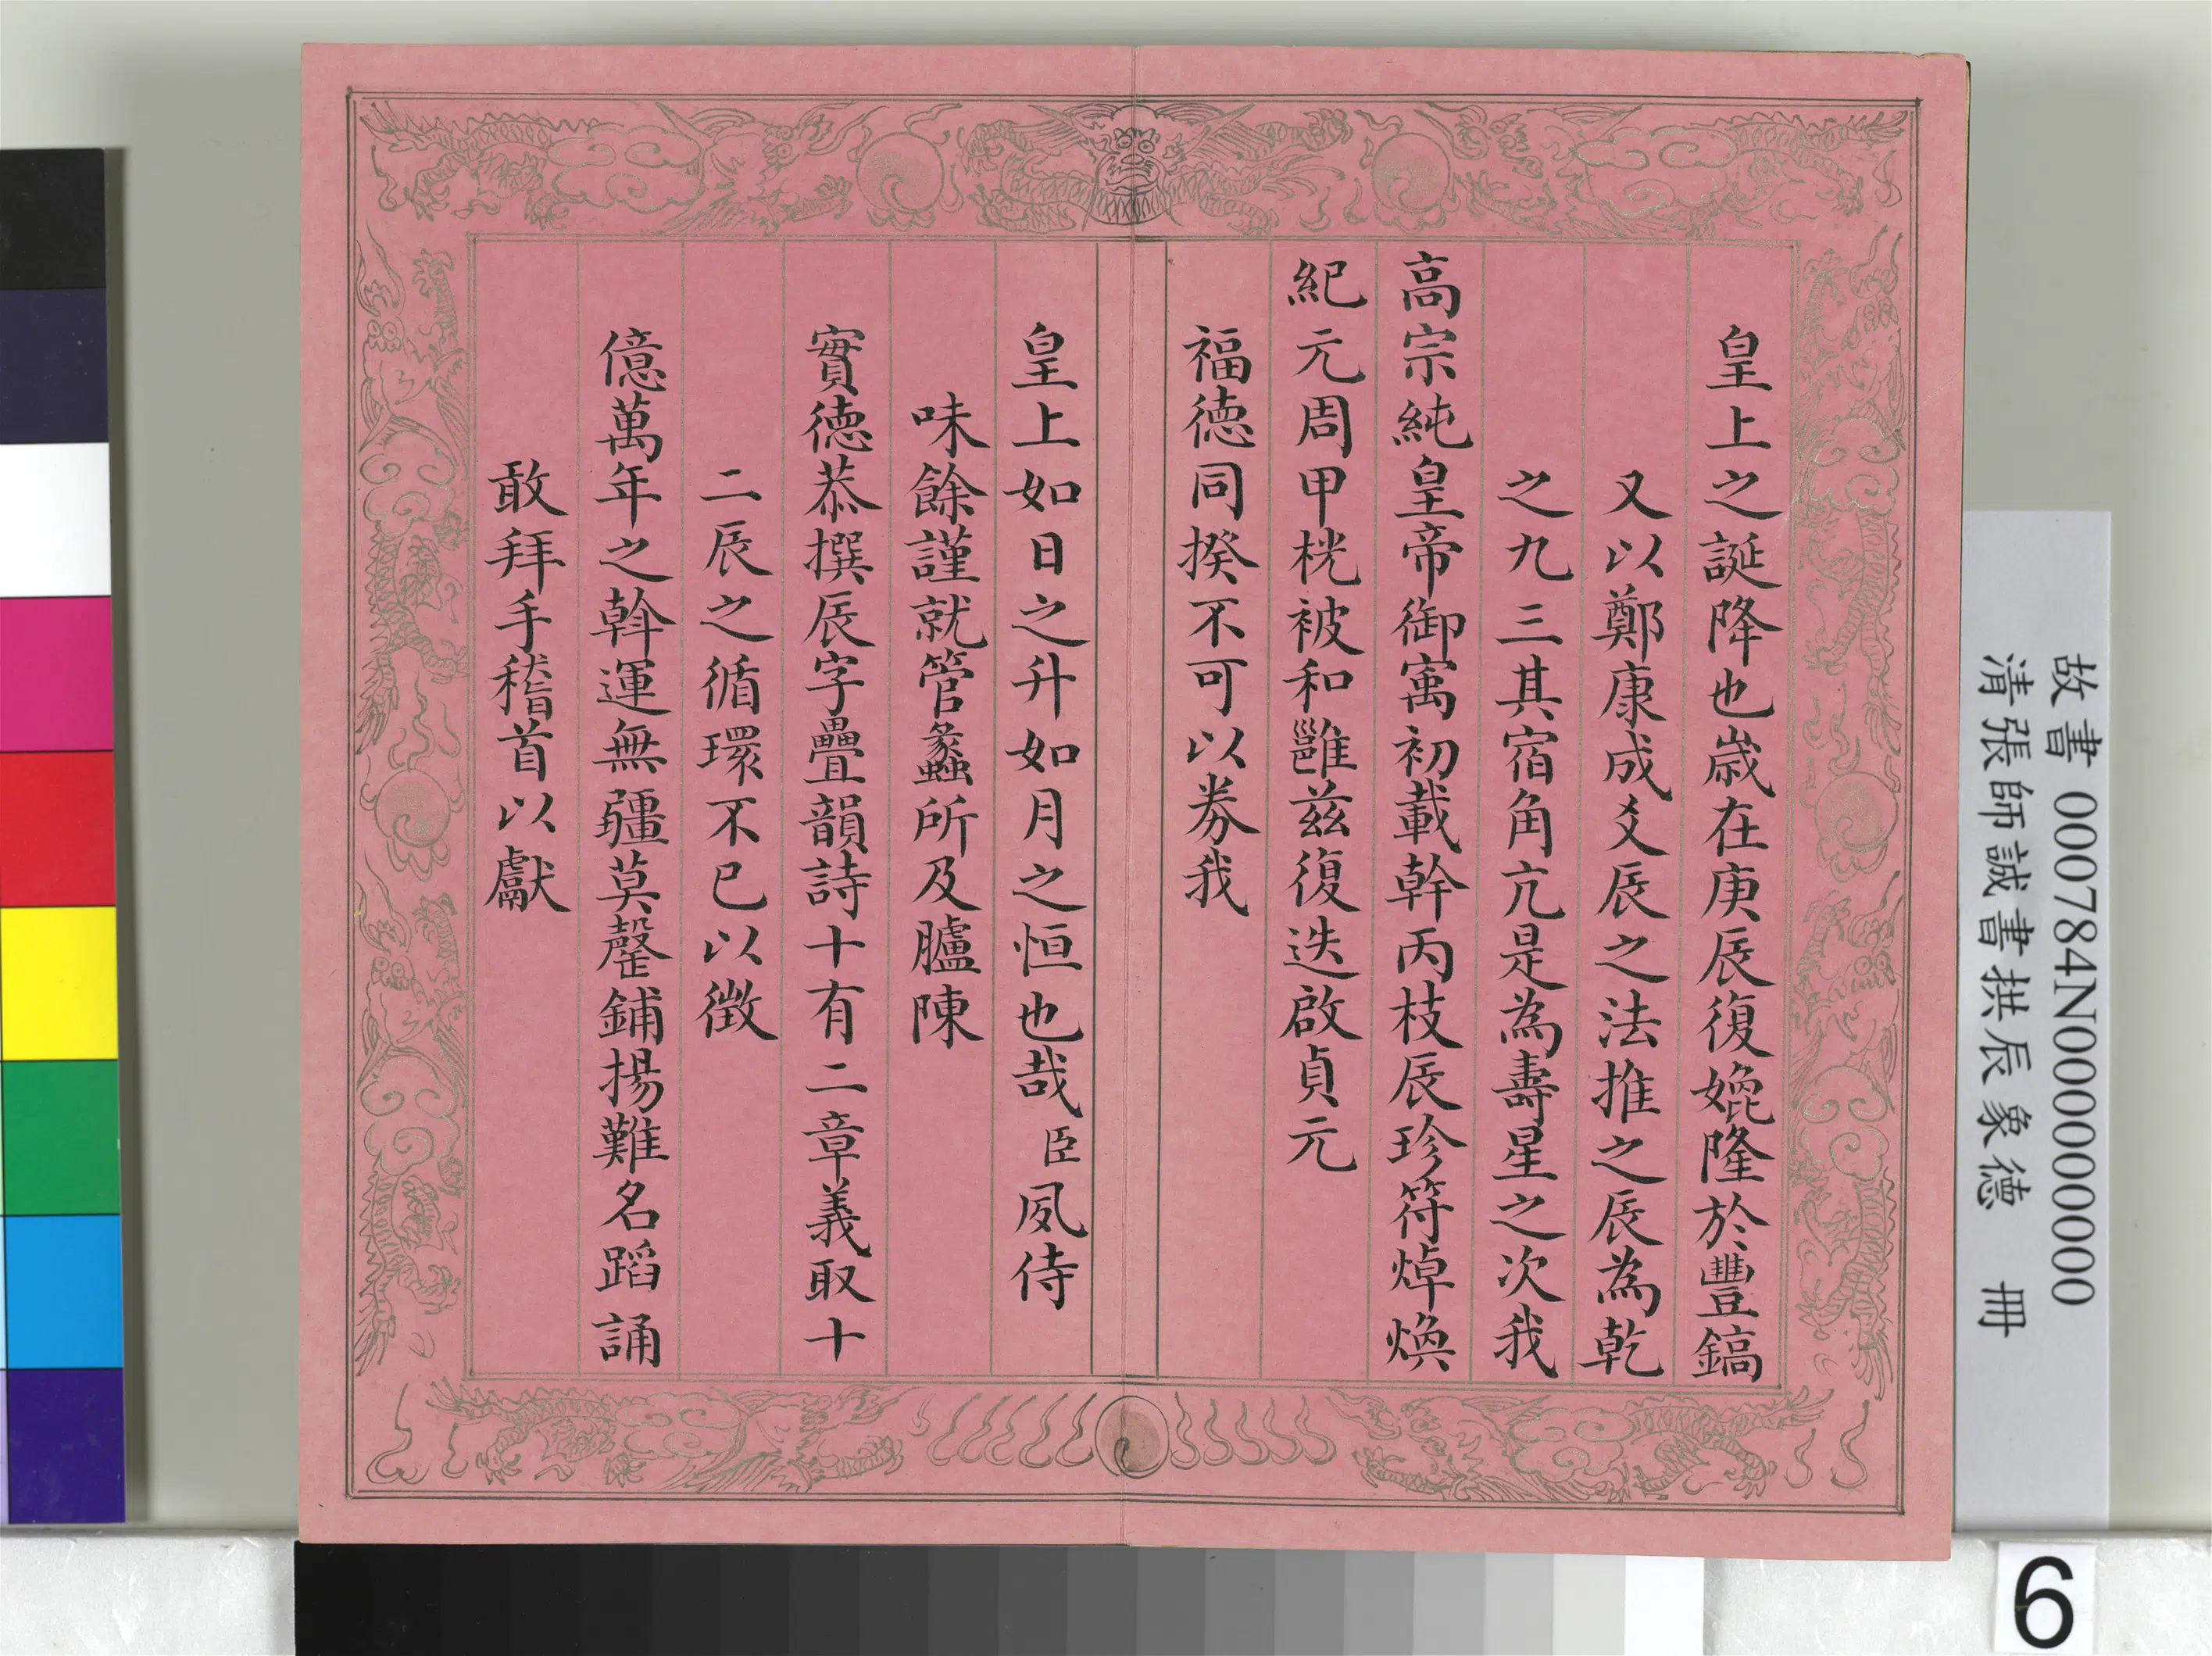 皇上之誕降也歲在庚辰復媲隆於豐鎬
又以鄭康成爻辰之法推之辰為乾
之九三其宿角亢是為壽星之次我
高宗純皇帝御寓初載幹丙枝辰珍符焯煥
紀元周甲桄被和雝茲復迭啟貞元
福德同揆不可以券我
皇上如日之升如月之恒也哉臣夙侍
味餘謹就管蠡所及臚陳
實德恭撰辰字疊韻詩十有二章義取十
二辰之循環不已以徵
億萬年之斡運無疆莫罄鋪揚難名蹈誦
敢拜手稽首以獻
故書 000784N000000000
清張師誠書拱辰象德 冊
6